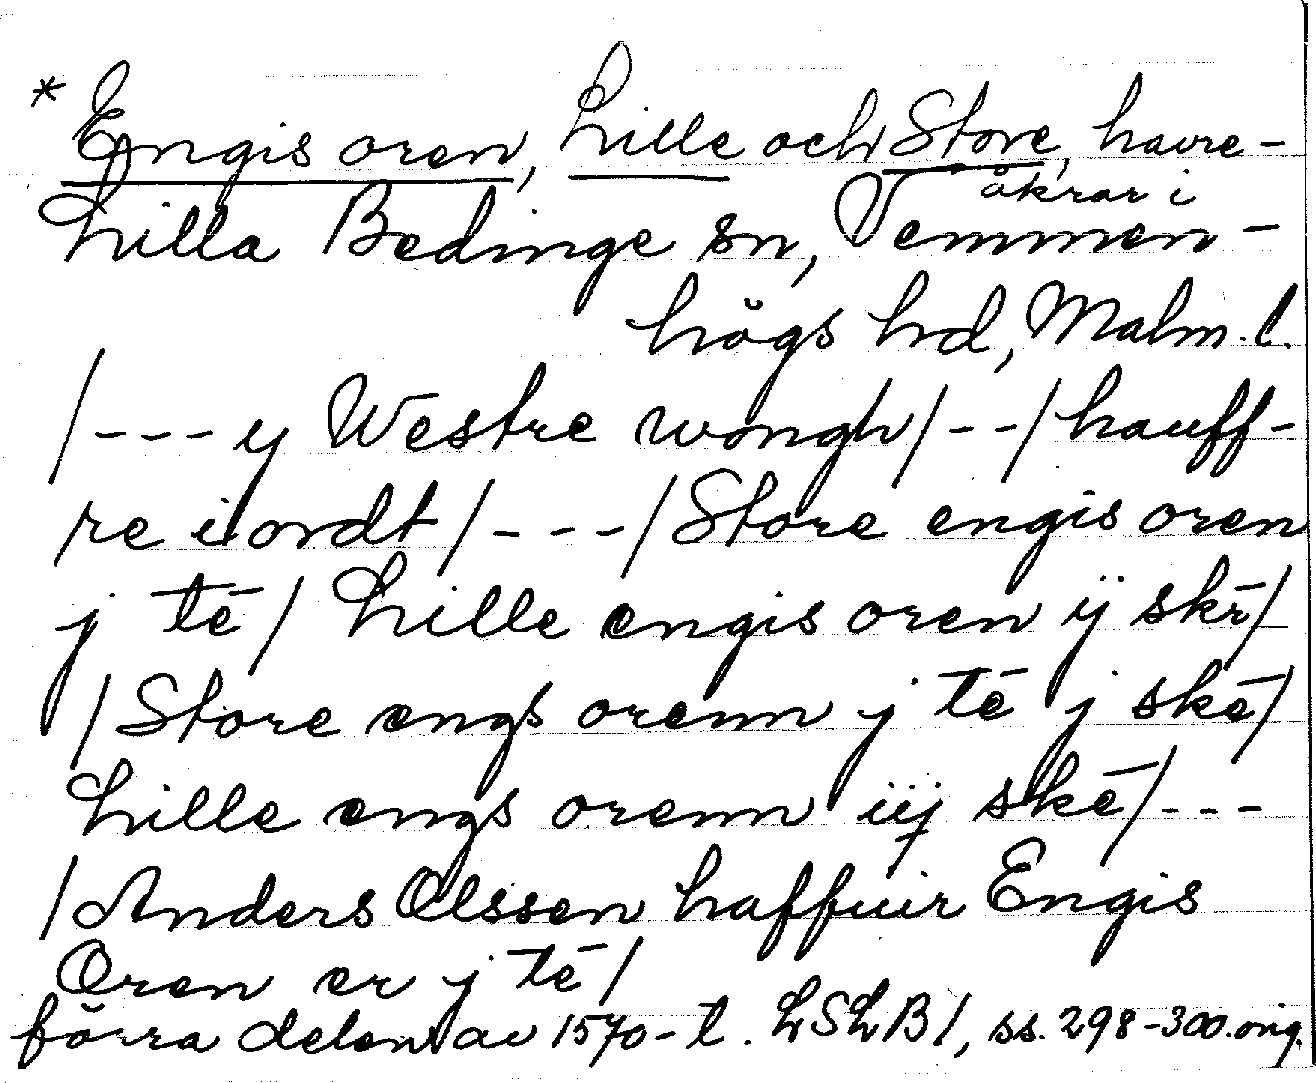 * Engis oren, Lille och Store, havre-
åkrar i
Lilla Bedinge sn, Vemmen-
högs hd, Malm. l.
/---y Westre wongh/--/hauff-
re iordt/---/Store engis oren
j tē/ Lille engis oren ij skē/
/Store engs orenn j tē j skē/
Lille engs orenn iij skē/---
/Anders Olssen haffuir Engis
Oren er j tē/
förra delen av 1570-t. LSLB 1, ss. 298-300. orig.